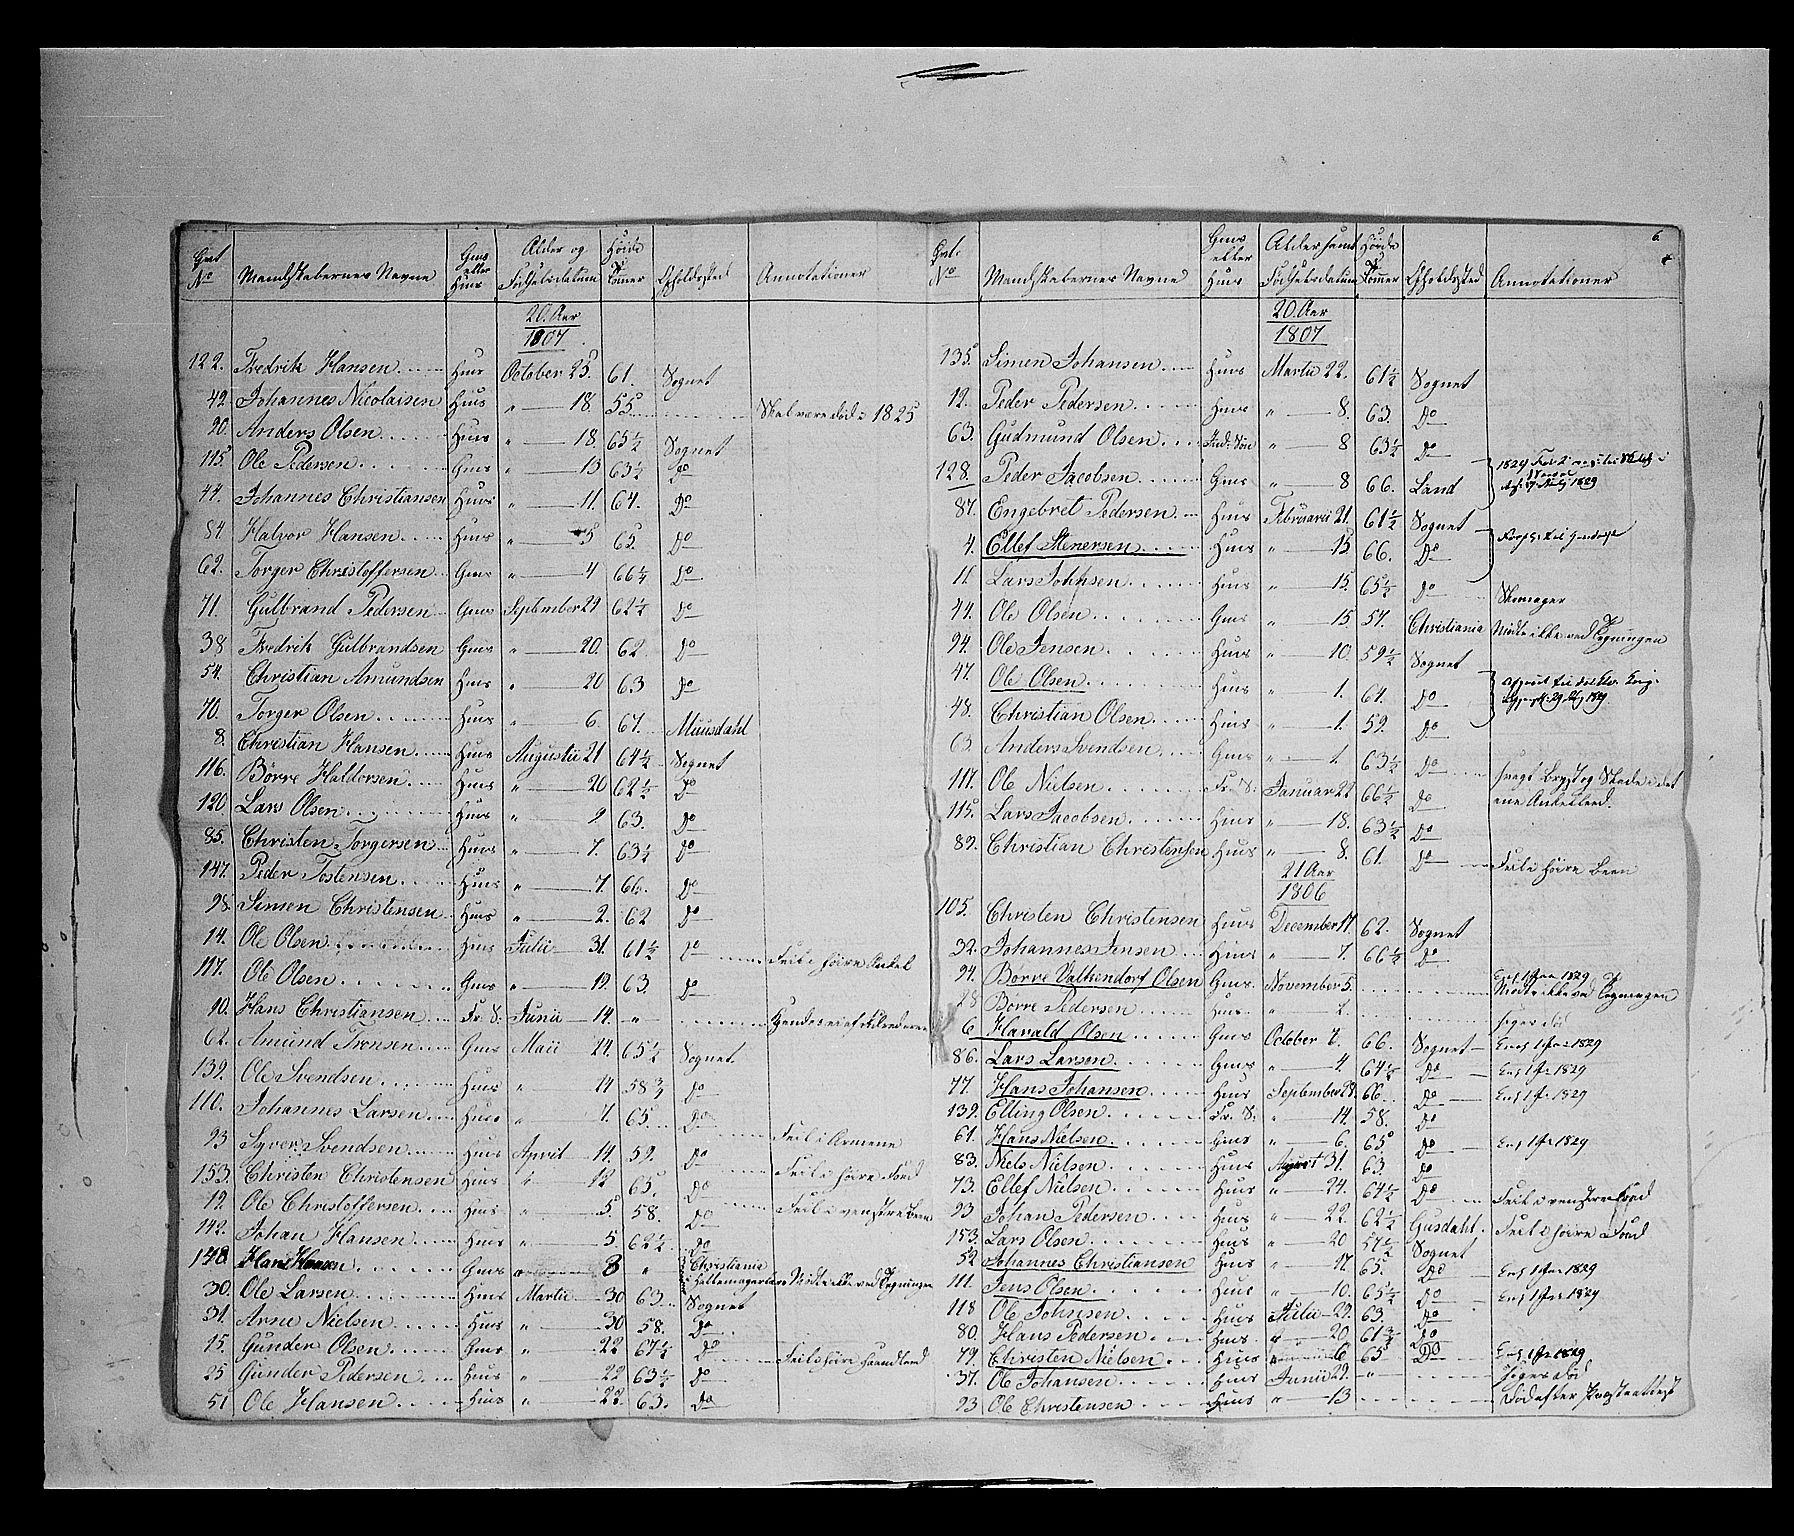 6.
Grd No | Mandskabernes Navne | Gms eller Huus | Alder og Fødselsdatum | Høide Tomer | Opholdssted | Annotationer
20. Aar
1807
122. Fredrik Hansen | Huus | October 25 | 61. | Sognet
42. Johannes Nicolaisen | Huus | " 18. | 55 | | Skal være død i 1825
90. Anders Olsen | Huus | " 18. | 65½ | Sognet
115. Ole Pedersen | Gms | " 13 | 63½ | Do
44. Johannes Christiansen | Huus | " 11. | 64. | Do
84. Halvor Hansen | Huus | " 5 | 65. | Do
62. Torger Christoffersen | Gms | " 4 | 66¼ | Do
71. Gulbrand Pedersen | Gms | September 29 | 62½ | Do
38 Fredrik Gulbrandsen | Gms | " 20. | 62 | Do
54. Christian Amundsen | Huus | " 20 | 63 | Do
70. Torger Olsen | Huus | " 6. | 67. | Muusdahl
8. Christian Hansen | Huus | Augustii 21 | 64½ | Sognet
116. Börre Haltorsen | Huus | " 20 | 62½ | Do
120 Lars Olsen | Huus | " 9 | 63. | Do
85. Christen Torgersen | Huus | " 7. | 63½ | Do
147. Peder Tostensen | Huus | " 7 | 66. | Do
98. Simen Christensen | Huus | " 2. | 62 | Do
14. Ole Olsen | Huus | Julii 31. | 61½ | Do | Feil i høire Ankel
117. Ole Olsen | Gms | " 19. | 63. | Do
10. Hans Christiansen | Fr. S: | Junii 14. | "
62. Amund Tronsen | Gms | Maii 24. | 65½ | Sognet
139. Ole Svendsen | Huus | " 14 | 58¾ | Do
110. Johannes Larsen | Huus | " 7. | 65. | Do
93 Syver Svendsen | Huus | April 14. | 59. | Do | Feil i Armene
153. Christen Christensen | Huus | " 12 | 65. | Do | Feil i høire Fod
19. Ole Christoffersen | Huus | " 5. | 58. | Do | Feil i venstre Been
142. Johan Hansen | Huus | " 5 | 62½ | Do
148. Hans Hansen | Gms | " 8 | " | Christiania | Mødte ikke ved Tegningen
30. Ole Larsen | Huus | Martii 30 | 63. | Sognet
31. Arne Nielsen | Huus | " 30 | 58. | Do
15. Gunder Olsen | Gms | " 22 | 67½ | Do | Feil i høire Haandled
25 Gunder Pedersen | Huus | " 22 | 63½ | Do
51 Ole Hansen | Huus | " 22. | 63. | Do
Grd. No | Mandskabernes Navne | Gms eller Huus | Alder samt Fødselsdatum | Høide Tomer | Opholdssted | Annotationer
20. Aar
1807
135. Simen Johansen | Huus | Martii 22. | 61½ | Sognet
12. Peder Pedersen | Huus | " 8. | 63. | Do
63. Gudmund Olsen | Ind. Søn | " 8 | 63½ | Do
128. Peder Jacobsen | Gms | " 8 | 66. | Land | 1829
87. Engebret Pedersen | Huus | Februarii 21. | 61½ | Sognet
4. Ellef Stenersen | Huus | " 15 | 66. | Do
11. Lars Johnsen | Huus | " 15. | 65½ | Do | Skomager
44. Ole Olsen | Gms | " 15. | 57. | Christiania | Mødte ikke ved Tegningen
94. Ole Jensen | Huus | " 10. | 59½ | Sognet
47. Ole Olsen | Huus | " 1. | 64. | Do
48. Christian Olsen | Huus | " 1. | 59. | Do
63. Anders Svendsen | Gms | " 1. | 63½ | Do | svagt Bryst og Skade i det ene Ankelled.
117. Ole Nielsen | Fr. S: | Januar 22 | 66½ | Do
115. Lars Jacobsen | Huus | " 18. | 63½ | Do
89. Christian Christensen | Huus | " 8. | 61. | Do | Feil i høire Been
21 Aar
1806
105. Christen Christensen | Huus | December 17. | 62. | Sognet
32. Johannes Jensen | Huus | " 7. | 66½ | Do
94. Börre Valkendorf Olsen | Gms | November 5. | | | 1829 Mødte ikke ved Tegningen
28 Börre Pedersen | Huus | " 2. | | | siges død
6. Harald Olsen | Gms | October 7. | 66. | Sognet | 1829
86. Lars Larsen | Gms | " 4. | 64½ | Do | 1829
77. Hans Johansen | Huus | September 28. | 66. | Do | 1829
139. Elling Olsen | Fr. S: | " 14. | 58. | Do
61. Hans Nielsen | Gms | " 6. | 65 | Do | 1829
83. Niels Nielsen | Huus | August 31. | 63. | Do
73. Ellef Nielsen | Huus | " 24. | 64½ | Do | Feil i venstre Fod
93 Johan Pedersen | Huus | " 22. | 62½ | Gusdahl. | Feil i høire Fod
153. Lars Olsen | Huus | " 20 | 57½ | Sognet
52 Johannes Christiansen | Huus | " 17. | 65. | Do | 1829
111. Jens Olsen | Huus | " 10. | 65½ | Do | 1829
118 Ole Johnsen | Huus | Julii 29. | 63. | Do
80. Hans Pedersen | Huus | " 20. | 61¾ | Do
79. Christen Nielsen | Huus | " 6 | 65 | Do | 1829
37. Ole Johansen | Huus | Junii 29. | " | | siges død
93 Ole Christensen | Huus | " 13 | | | Død efter Præsteattest